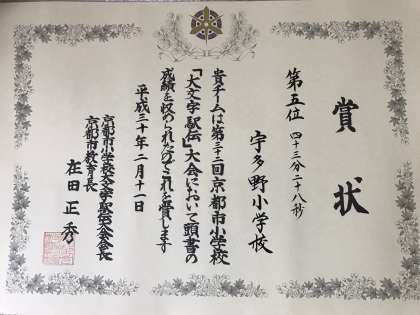 賞状
第五位 四十三分二十八秒
宇多野小学校
貴チームは第三十二回京都市小学校
「大文字駅伝」大会において頭書の
成績を収められたのでこれを賞します
平成三十年二月十一日
京都市小学校大文字駅伝大会会長
京都市教育長
在田正秀